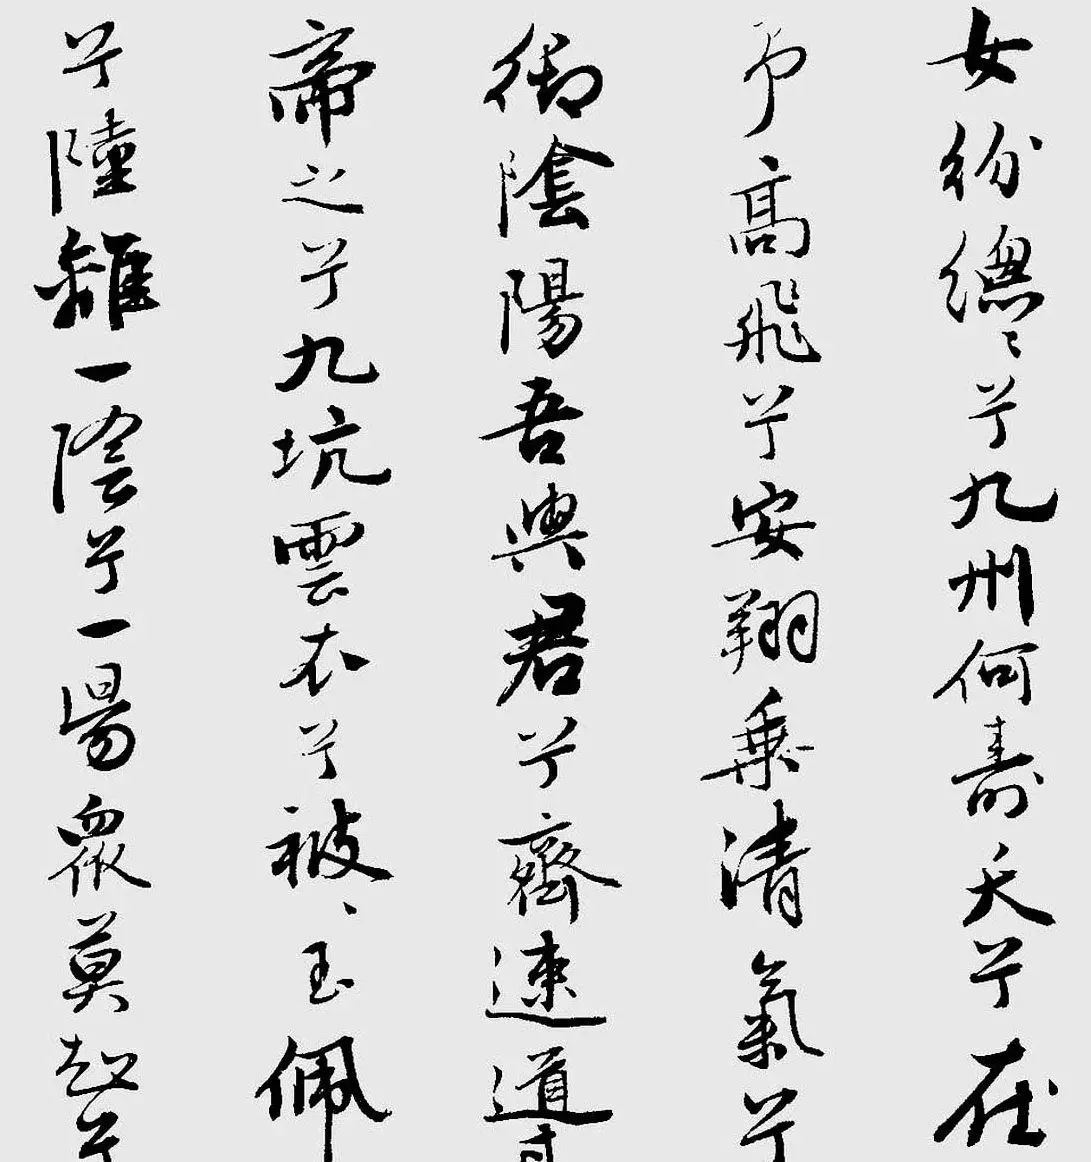 女紛總〻兮九州何壽夭兮在
予高飛兮安翔乗清氣兮
御陰陽吾與君兮齊速道
帝之兮九坑雲衣兮被〻玉佩
兮陸離一陰兮一陽眾莫知兮